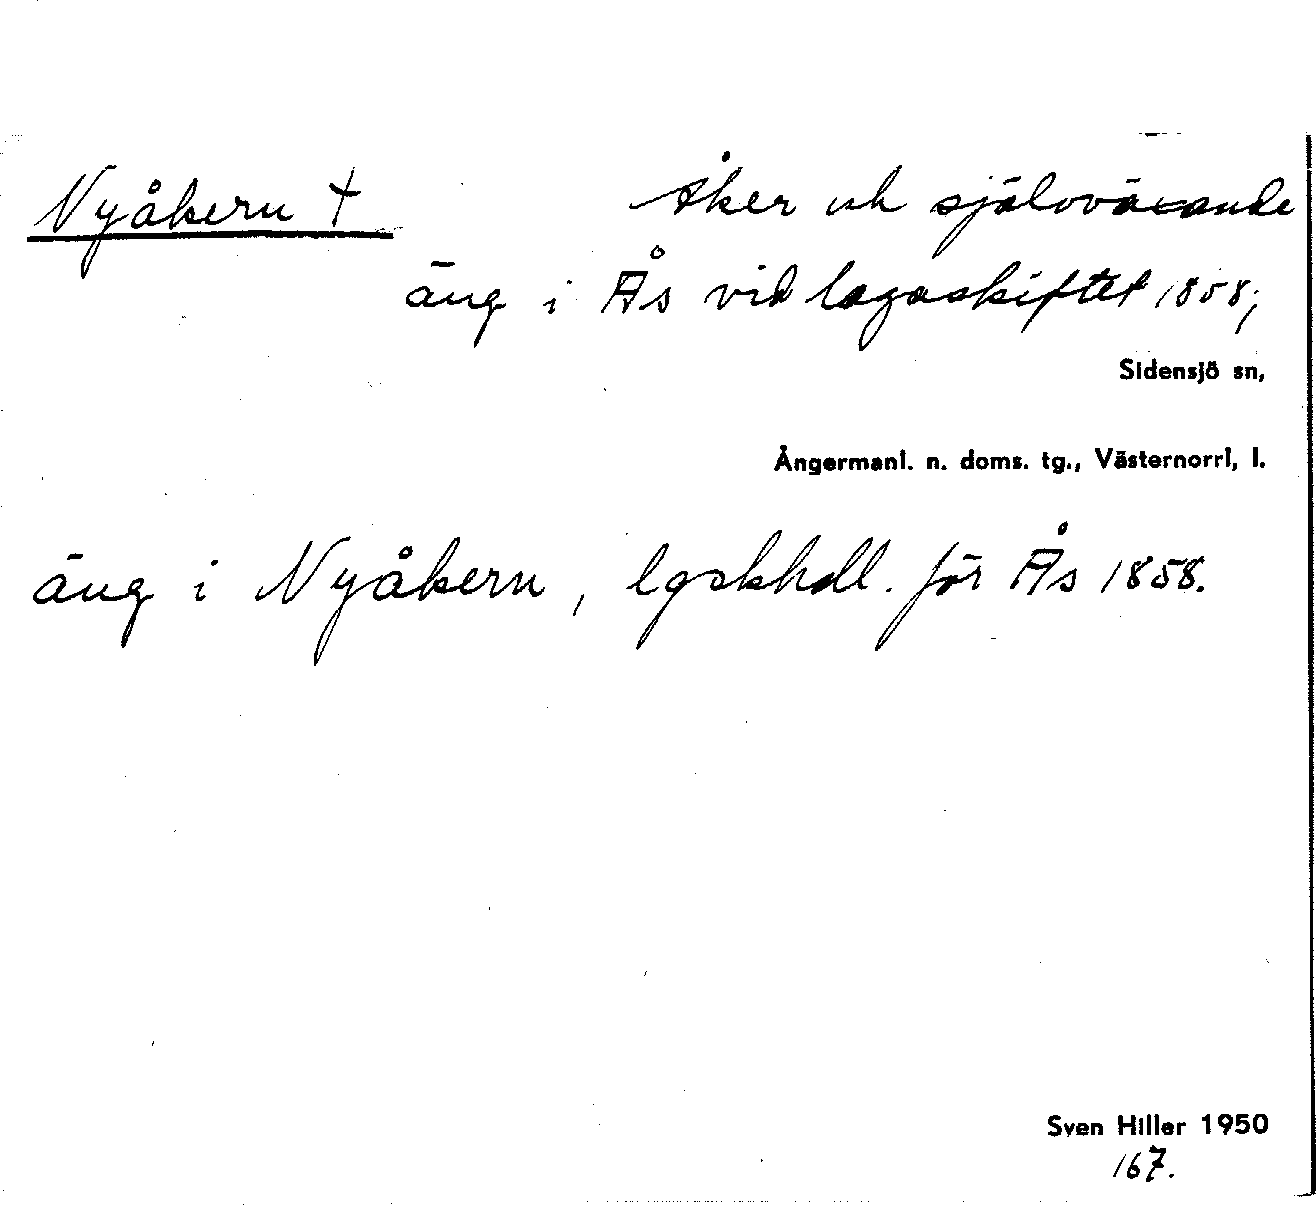 Nyåkern † Åker och självväxande
äng i Ås vid lagaskiftet 1858;
Sidensjö sn,
Ångermanl. n. doms. tg., Västernorrl, l.
äng i Nyåkern, lgskhdl. för Ås 1858.
Sven Hiller 1950
167.